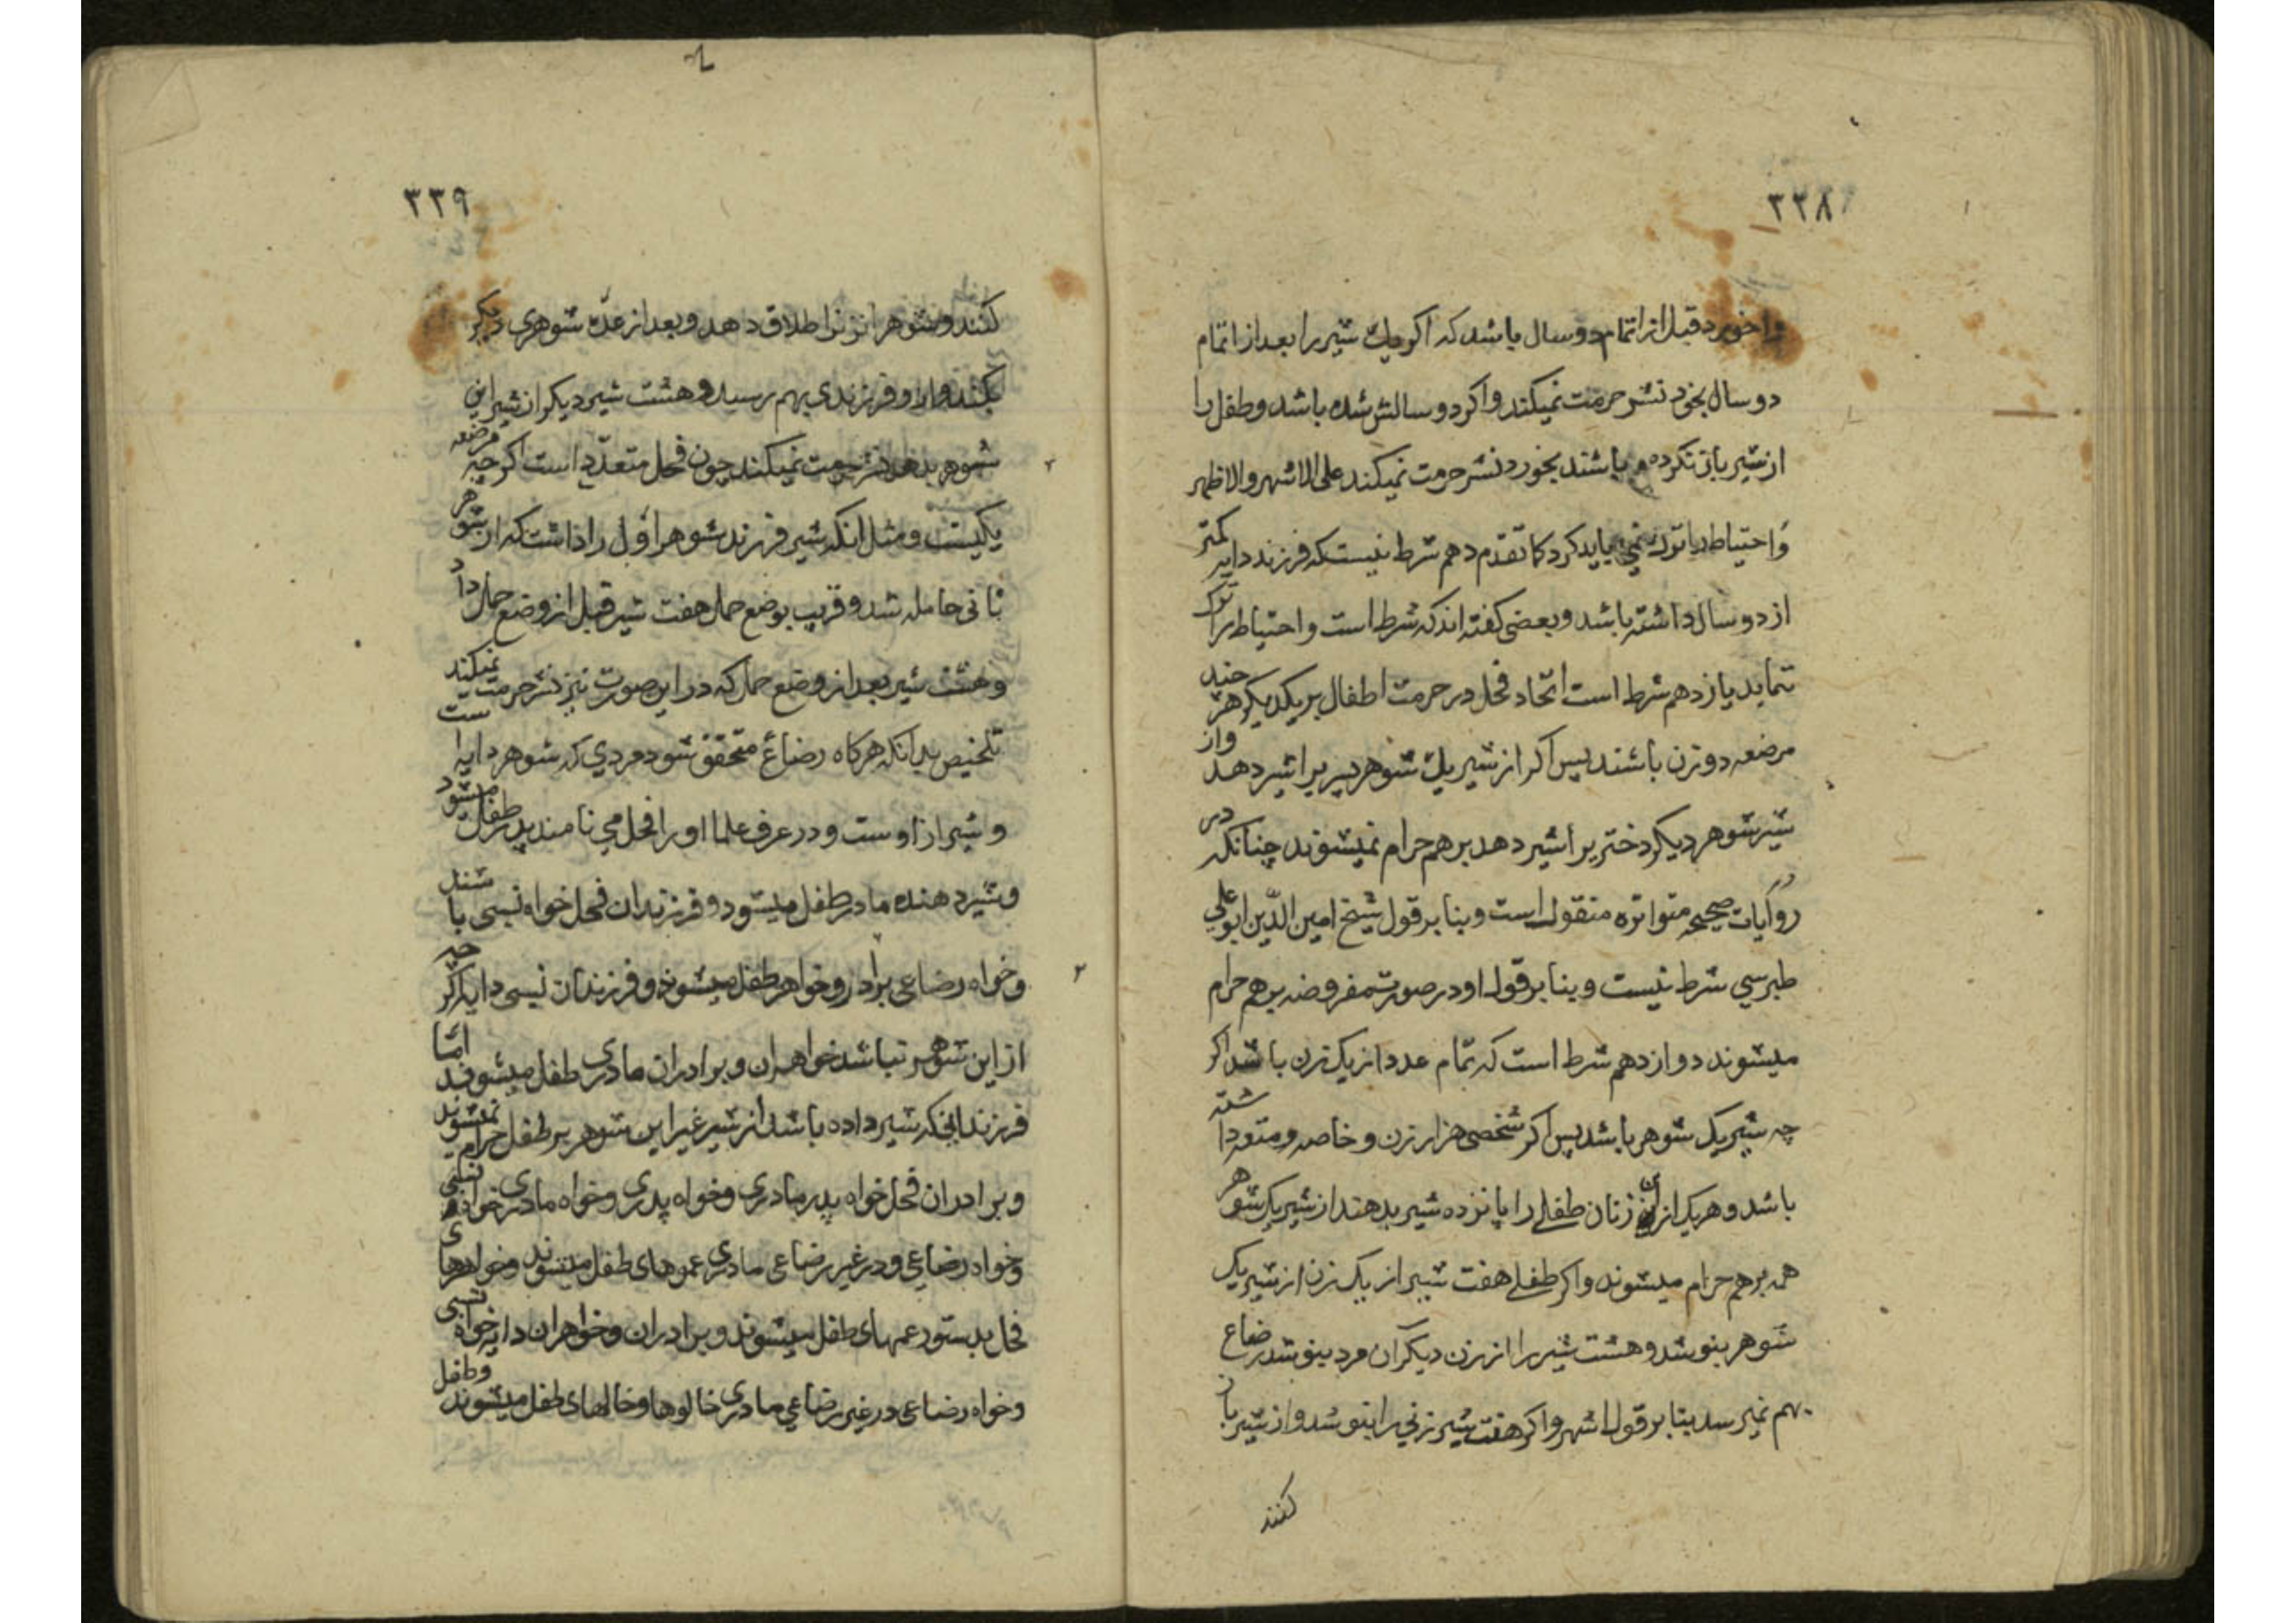 ٣٣٨
واخورد قبل از اتمام دو سال باشد که اکر یك شیر را بعد از اتمام
دو سال بخورد نشر حرمت نمیکند واکر دو سالش شده باشد وطفل را
از شیر باز نکرده باشند بخورد نشر حرمت نمیکند علی الاشهر والاظهر
واحتیاط را باید کرد کما تقدم دهم شرط نیست که فرزند دایه کمتر
از دو سال داشته باشد وبعضی کفته اند که شرط است واحتیاط را ترک
ننماید یازدهم شرط است اتحاد فحل در حرمت اطفال بر یکدیکر هر چند
مرضعه دو زن باشند پس اکر از شیر یك شوهر پسریرا شیر دهد واز
شیر شوهر دیکر دختریرا شیر دهد بر هم حرام نمیشوند چنانکه در
روایات صحیحه متواتره منقول است وبنا بر قول شیخ امین الدین ابو علی
طبرسی شرط نیست وبنا بر قول او در صورت مفروضه بر هم حرام
میشوند دوازدهم شرط است که تمام عدد از یک زن باشد اکر
چه شیر یک شوهر باشد پس اکر شخصی هزار زن وخاصه ومتعه داشته
باشد وهر یک از این زنان طفلی را پانزده شیر بدهند از شیر یک شوهر
همه بر هم حرام میشوند واکر طفلی هفت شیر از یک زن از شیر یک
شوهر بنوشد وهشت شیر را از زن دیکر ان مرد بنوشد رضاع
بهم نمیرسد بنا بر قول اشهر واکر هفت شیر زنی را بنوشد واز شیر باز
کنند
٣٣٩
کنند وشوهر انزنرا طلاق دهد وبعد از عدّه شوهری دیکر
بکند واز او فرزندی بهم رسید وهشت شیر دیکر از شیر این
شوهر بدهد نشر حرمت نمیکند چون فحل متعدّد است اکر چه مرضعه
یکیست ومثل انکه شیر فرزند شوهر اول را داشت که از شوهر
ثانی حامله شد وقریب بوضع حمل هفت شیر قبل از وضع حمل داد
وهشت شیر بعد از وضع حمل که در این صورت نیز نشر حرمت نمیکند
تلخیص بدانکه هرکاه رضاع متحقق شود مردی که شوهر دایه است
وشیر از اوست ودر عرف علما او را فحل می نامند پدر طفل میشود
وشیر دهنده مادر طفل میشود وفرزندان فحل خواه نسبی باشند
وخواه رضاعی برادر وخواهر طفل میشوند وفرزندان نسبی دایه اکر چه
از این شوهر نباشد خواهران وبرادران مادری طفل میشوند امّا
فرزندانیکه شیر داده باشد از شیر غیر این شوهر بر طفل حرام نمیشوند
وبرادران فحل خواه پدر مادری وخواه پدری وخواه مادری خواه نسبی
وخواه رضاعی ودر غیر رضاعی مادری عموهای طفل میشوند وخواهرهای
فحل بدستور عمهای طفل میشوند وبرادران وخواهران دایه خواه نسبی
وخواه رضاعی در غیر رضاعی مادری خالوها وخالهای طفل میشوند وطفل